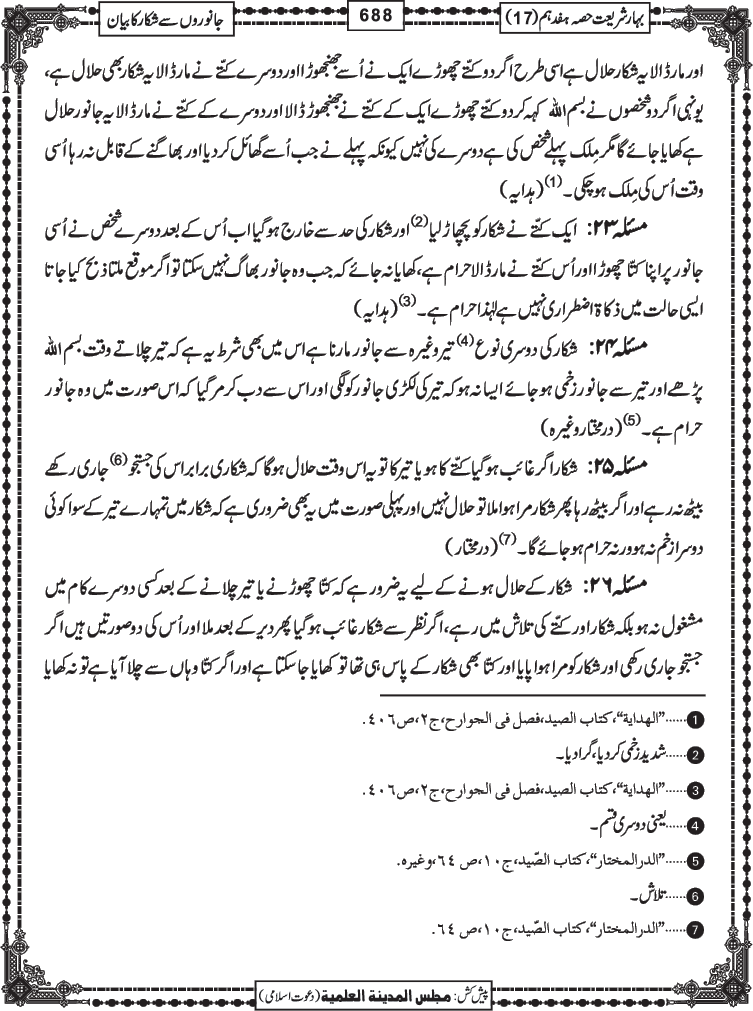 بہارِ شریعت حصہ ہفدہم (17)
688
جانوروں سے شکار کا بیان
اور مار ڈالا یہ شکار حلال ہے اسی طرح اگر دو کتے چھوڑے ایک نے اُسے جھنجھوڑا اور دوسرے کتے نے مار ڈالا یہ شکار بھی حلال ہے،
یونہی اگر دو شخصوں نے بسم اللہ کہہ کر دو کتے چھوڑے ایک کے کتے نے جھنجھوڑ ڈالا اور دوسرے کے کتے نے مار ڈالا یہ جانور حلال
ہے کھایا جائے گا مگر مِلک پہلے شخص کی ہے دوسرے کی نہیں کیونکہ پہلے نے جب اُسے گھائل کر دیا اور بھاگنے کے قابل نہ رہا اُسی
وقت اُس کی مِلک ہو چکی۔(1) (ہدایہ)
مسئلہ ۲۳: ایک کتے نے شکار کو پچھاڑ لیا(2) اور شکار کی حد سے خارج ہو گیا اب اُس کے بعد دوسرے شخص نے اُسی
جانور پر اپنا کتا چھوڑا اور اُس کتے نے مار ڈالا حرام ہے، کھایا نہ جائے کہ جب وہ جانور بھاگ نہیں سکتا تو اگر موقع ملتا ذبح کیا جاتا
ایسی حالت میں ذکاۃ اضطراری نہیں ہے لہٰذا حرام ہے۔(3) (ہدایہ)
مسئلہ ۲۴: شکار کی دوسری نوع(4) تیر وغیرہ سے جانور مارنا ہے اس میں بھی شرط یہ ہے کہ تیر چلاتے وقت بسم اللہ
پڑھے اور تیر سے جانور زخمی ہو جائے ایسا نہ ہو کہ تیر کی لکڑی جانور کو لگی اور اس سے دب کر مر گیا کہ اس صورت میں وہ جانور
حرام ہے۔(5) (درمختار وغیرہ)
مسئلہ ۲۵: شکار اگر غائب ہو گیا کتے کا ہو یا تیر کا تو یہ اس وقت حلال ہوگا کہ شکاری برابر اس کی جستجو(6) جاری رکھے
بیٹھ نہ رہے اور اگر بیٹھ رہا پھر شکار مرا ہوا ملا تو حلال نہیں اور پہلی صورت میں یہ بھی ضروری ہے کہ شکار میں تمہارے تیر کے سوا کوئی
دوسرا زخم نہ ہو ورنہ حرام ہو جائے گا۔(7) (درمختار)
مسئلہ ۲۶: شکار کے حلال ہونے کے لیے یہ ضرور ہے کہ کتا چھوڑنے یا تیر چلانے کے بعد کسی دوسرے کام میں
مشغول نہ ہو بلکہ شکار اور کتے کی تلاش میں رہے، اگر نظر سے شکار غائب ہو گیا پھر دیر کے بعد ملا اور اُس کی دو صورتیں ہیں اگر
جستجو جاری رکھی اور شکار کو مرا ہوا پایا اور کتا بھی شکار کے پاس ہی تھا تو کھایا جاسکتا ہے اور اگر کتا وہاں سے چلا آیا ہے تو نہ کھایا
1 ......"الهداية"، كتاب الصيد، فصل فى الجوارح، ج٢، ص٤٠٦.
2 ......شدید زخمی کر دیا، گرا دیا۔
3 ......"الهداية"، كتاب الصيد، فصل فى الجوارح، ج٢، ص٤٠٦.
4 ......یعنی دوسری قسم۔
5 ......"الدر المختار"، كتاب الصّيد، ج١٠، ص ٦٤، وغيره.
6 ......تلاش۔
7 ......"الدر المختار"، كتاب الصّيد، ج١٠، ص ٦٤.
پیش کش: مجلس المدينة العلمية (دعوت اسلامی)